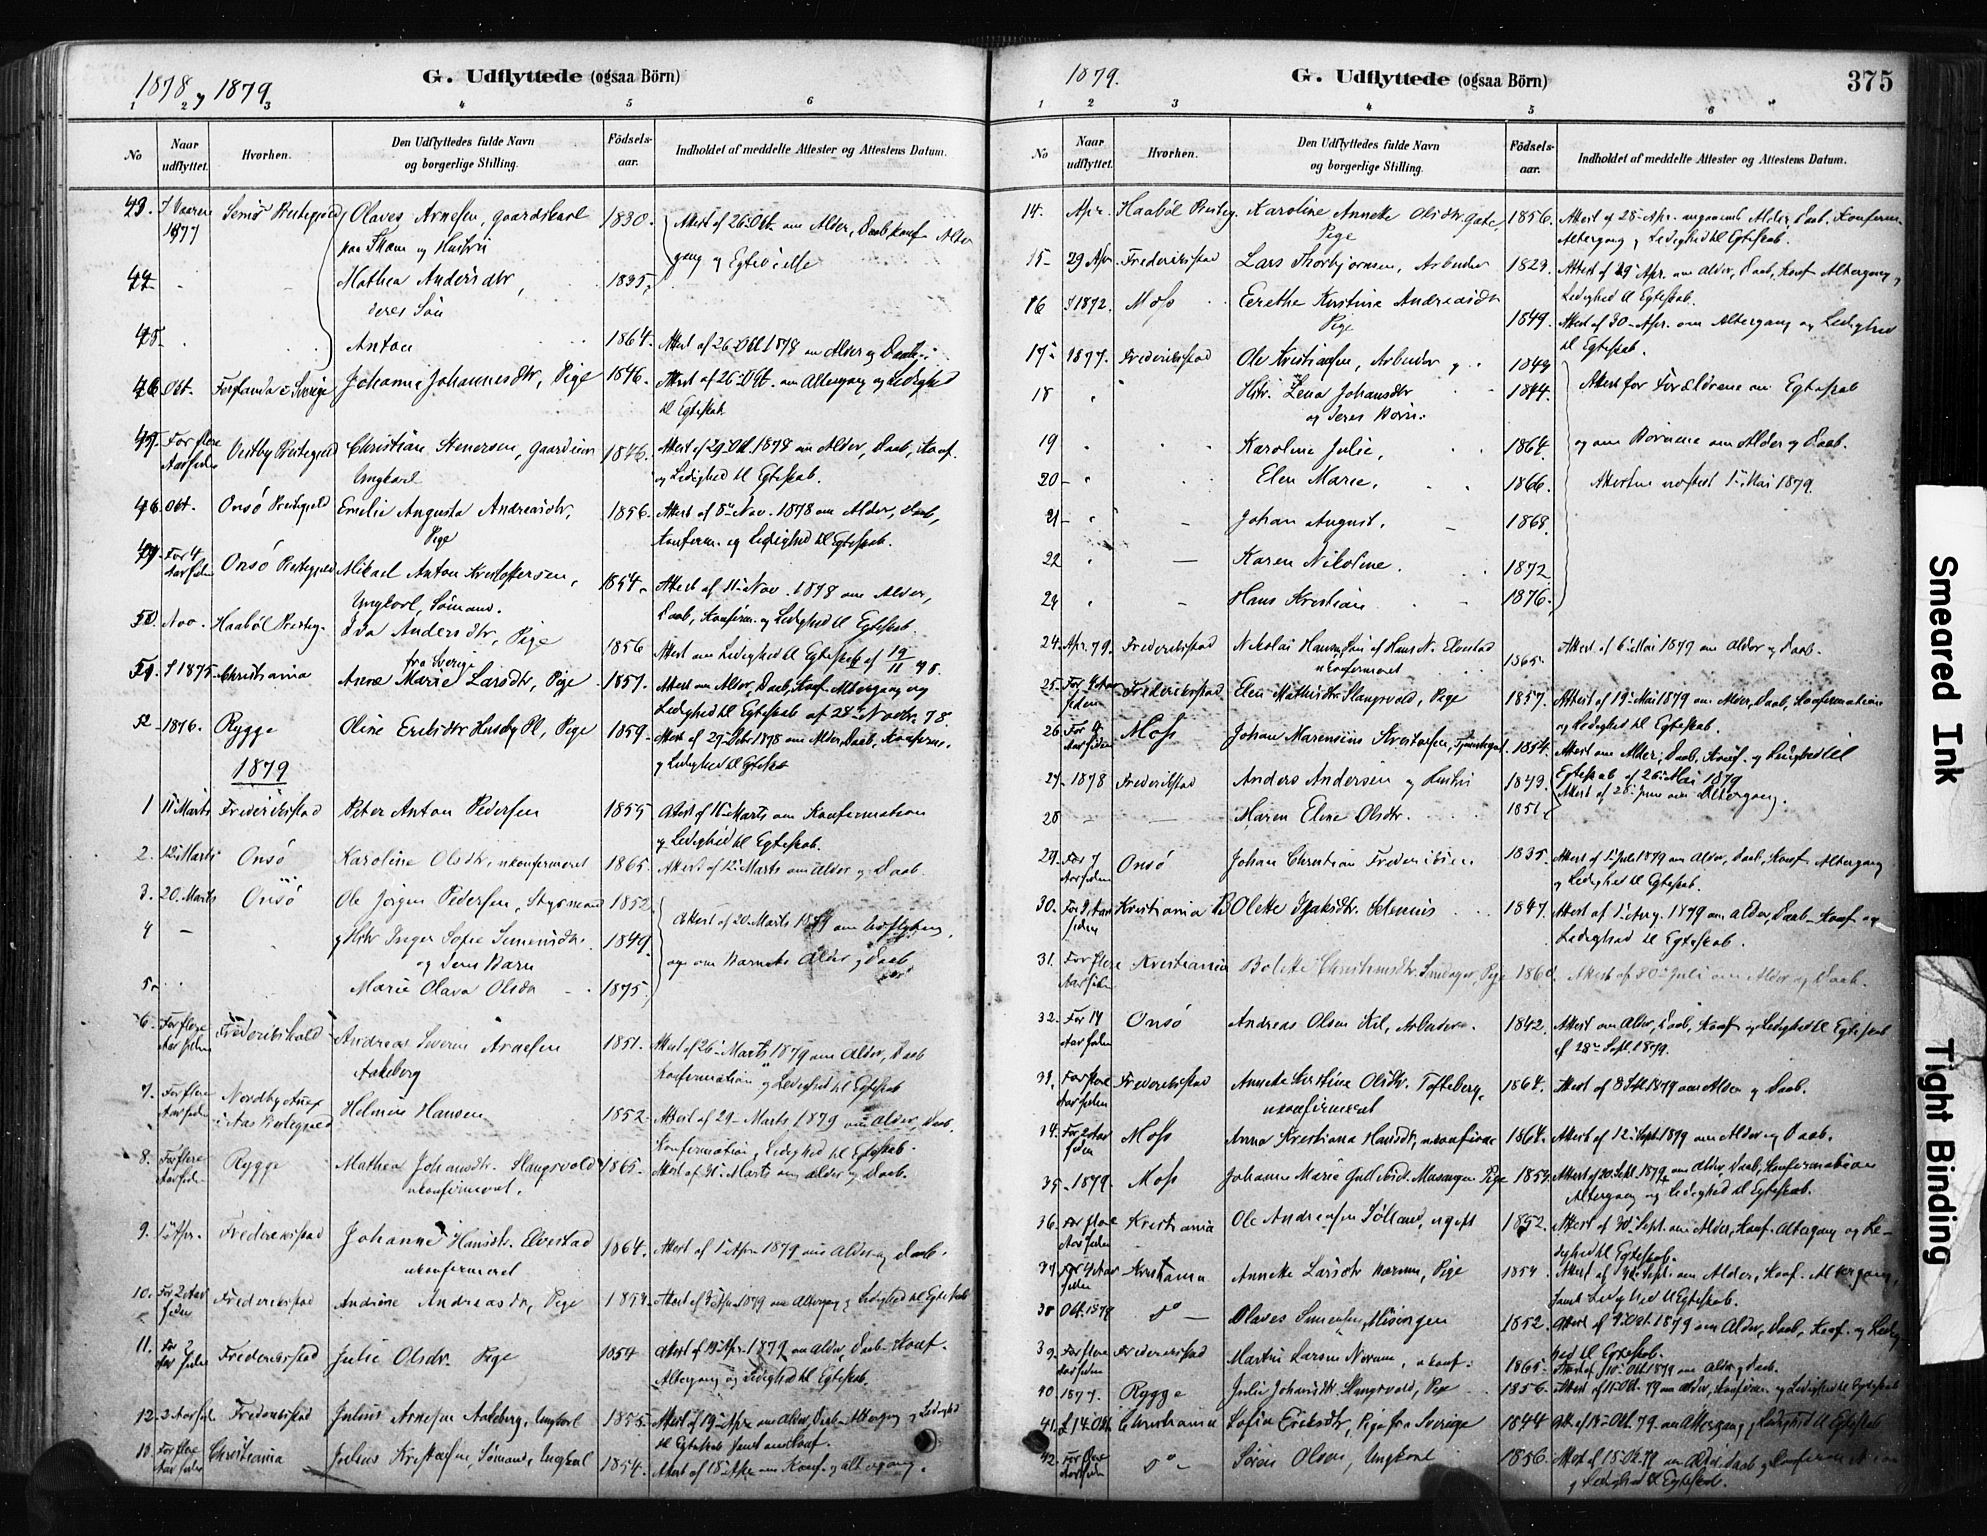 1878 og 1879
G. Udflyttede (ogsaa Börn)
1 2 3 4 5 6
No
Naar udflyttet.
Hvorhen.
Den Udflyttedes fulde Navn og borgerlige Stilling.
Födsels-aar.
Indholdet af meddelte Attester og Attestens Datum.
43. I Vaaren 1877 Præstegjeld Olaves Arnesen, Gaardskarl 1830. Attest af 26 Okt. om Alder, Daab Konf. Alter
og Hustru gang og Egtevielse
44 Mathea Andersdtr, 1835,
deres Søn
45. Anton 1864. Attest af 26 Okt 1878 om Alder og Daab
46. Okt. Sverige Johanne Johannesdtr, Pige 1846. Attest af 26 Okt. om Altergang og Ledighed
til Egteskab
47. For flere Aar siden Vestby Præstegjeld Christian Stenersen, 1846. Attest af 29 Okt. 1878 om Alder, Daab, Konf.
Ungkarl og Ledighed til Egteskab.
48. Okt. Onsö Præstegjeld Emilie Augusta Andreasdtr, 1856. Attest af 8 Nov. 1878 om Alder, Daab,
Pige Konfirm. og Ledighed til Egteskab.
49. For 4 Aar siden Onsö Præstegjeld Mikael Anton Kristoffersen, 1854. Attest af 11 Nov. 1878 om Alder,
Ungkarl, Sømand. Daab, Konfirm. og Ledighed til Egteskab.
50. Nov. Haabøl Præsteg. Ida Andersdtr, Pige 1856 Attest om Ledighed til Egteskab af 19/11 78.
fra Sverige
51. I 1875 Christiania Anne Marie Larsdtr, Pige 1857. Attest om Alder, Daab, Konf. Altergang og
Ledighed til Egteskab af 28 Novbr. 78.
52 1876. Rygge Oline Eriksdtr Huseby Pl, Pige 1859. Attest af 29 Debr 1878 om Alder, Daab, Konfirm.
og Ledighed til Egteskab
1879
1 11 Marts Frederikstad Peter Anton Pedersen 1855 Attest af 11 Marts om Konfirmation
og Ledighed til Egteskab.
2. 12 Marts Onsö Karoline Olsdtr, ukonfirmeret 1865. Attest af 12 Marts om Alder og Daab.
3. 20 Marts Onsö Ole Jörgen Pedersen, Styrmand 1852 Attest af 20 Marts 1879 om Udflytning,
4 – og Hstr Inger Sofie Simensdtr. 1849 og om Barnets Alder og Daab
og deres Barn
5. Marie Olava Olsdtr 1875.
6. For flere Aar siden Frederikshald Andreas Severin Arnesen 1851. Attest af 26 Marts 1879 om Alder, Daab
Aakeberg Konfirmation og Ledighed til Egteskab
7. For flere Aar siden Nordby Anex i Aas Præstegjeld Helmer Hansen 1852. Attest af 29 Marts 1879 om Alder, Daab,
Konfirmation og Ledighed til Egteskab.
8. For flere Aar siden Rygge Mathea Johansdtr. Slangsvold 1865. Attest af 31 Marts om Alder og Daab.
ukonfirmeret.
9. 1 Apr. Frederikstad Johanne Hansdtr. Elvestad 1864. Attest af 1 Apr. 1879 om Alder og Daab.
ukonfirmeret
10. For 2 Aar siden Frederikstad Andrine Andreasdtr, Pige Attest af 1879 om Altergang og Ledighed til Egteskab
11. For Aar siden Frederikstad Julie Olsdtr. Pige 1854 Attest af 19 Apr. 1879 om Alder, Daab. Konf.
Altergang og Ledighed til Egteskab.
12. Frederikstad Julius Arnesen Aakeberg, Ungkarl 1855. Attest af 19 Apr. om Alder, Daab, Altergang og Ledighed
til Egteskab samt om Konf.
13. For flere Aar siden Christiania Julius Kristiansen, Sømand, Ungkarl 1854. Attest af 18 Apr om Konf. og altergang.
1879.
G. Udflyttede (ogsaa Börn)
375
1 2 3 4 5 6
No
Naar udflyttet.
Hvorhen.
Den Udflyttedes fulde Navn og borgerlige Stilling.
Födsels-aar.
Indholdet af meddelte Attester og Attestens Datum.
14. Apr. Haabøl Præsteg. Karoline Annette Olsdtr. 1856. Attest af 28 Apr. angaaende Alder, Daab, Konfirm.
Pige Altergang og Ledighed til Egteskab.
15 29 Apr Frederikstad Lars Thorbjørnsen, Arbeider 1823. Attest af 29 Apr. om Alder, Daab, Konf. Altergang og
Ledighed til Egteskab.
16 I 1872. Moss Kristine Andreasdtr
Pige 1849. Attest af 30 Apr. om Altergang og Ledighed
til Egteskab.
17 1877. Frederikstad Ole Kristiansen, Arbeider og 1849 Attest for Forældrene om Egteskab
18 Hstr. Lena Johansdtr 1844.
og deres Børn:
19 Karoline Julie, 1864. og om Børnene om Alder og Daab.
20 Elen Marie, 1866. Attesten udstedt 1 Mai 1879.
21 Johan August, 1868
22 Karen Nikoline. 1872
Hans Kristian 1876.
24. Apr. 79. Frederikstad Nikolai Hansen Søn af Hans N. Elvestad 1865. Attest af 6 Mai 1879 om Alder og Daab.
ukonfirmeret
25. For Aar siden Frederikstad Elen Mathisdtr Slangsvold, Pige 1857. Attest af 19 Mai 1879 om Alder, Daab, Konfirmation
og Ledighed til Egteskab.
26. For Aar siden Moss Johan Kristiansen, 1854. Attest om Alder, Daab, Konf. og Ledighed til
Egteskab af 26 Mai 1879
27 1878 Frederikstad Anders Andersen og Hustru 1849. Attest af 28 Juni om Altergang.
28 – – Maren Eline Olsdtr. 1851
29. For 7 Aar siden Onsö Johan Christian Frederiksen 1835. Attest af 1 Juli 1879 om Alder, Daab, Konf. Altergang
og Ledighed til Egteskab.
30. For Aar siden Kristiania Olette Isaksdtr. 1847. Attest af 1 Aug. 1879 om Alder, Daab, Konf og
Ledighed til Egteskab.
31. For flere Aar siden Kristiania Bolette Christiansdtr. Pige Attest af 30 Juli om Alder og Daab.
32. For 14 Aar siden Onsö Andreas Olsen Kil, Arbeider. 1842. Attest om Alder, Daab, Konf. og Ledighed til Egteskab
af 28 Sept. 1879.
33. For flere Aar siden Frederikstad Annette Kristine Olsdtr. Tofteberg 1864. Attest af 8 Sept 1879 om Alder og Daab.
ukonfirmeret
34. For 2 Aar siden Moss Anna Kristiana Hansdtr, ukonfirm 1864. Attest af 12 Sept. 1879 om Alder og Daab.
35 1879. Moss Johanne Marie Pige Attest af 20 Sept. 1879 om Alder, Daab, Konfirmation
Altergang og Ledighed til Egteskab.
36. For flere Aar siden Kristiania Ole Andreasen ugift 1852. Attest af 30 Sept. om Alder, Konf. Altergang og Le-
dighed til Egteskab.
37 For 4 Aar siden Kristiania Annette Larsdtr Pige 1854 Attest af Sept. om Alder, Konf. Altergang,
samt Ledighed til Egteskab.
38 Okt. 1879 do – Olaves Simensen Misingen 1852. Attest af 9 Okt. 1879 om Alder, Daab, Konf. og Ledig-
hed til Egteskab.
39 For flere Aar siden Frederikstad Martin Larsen ukonf: 1865. Attest af 10 Okt 1879 om Alder og Daab.
40 1877. Rygge Julie Johansdtr Slangsvold, Pige 1856. Attest af 11 Okt. 79 om Alder, Konfirm. og Ledighed til Egteskab
41. Christiania Sofia Eriksdtr, Pige fra Sverige 1844 Att. af 14 Okt. 79. om Altergang og Ledighed til Egteskab
42. For flere Aar siden do Søren Olsen, Ungkarl 1856. Attest af 15 Okt. 79 om Alder, Daab og Konfirmation
og Ledighed til Egteskab.
Smeared Ink
Tight Binding